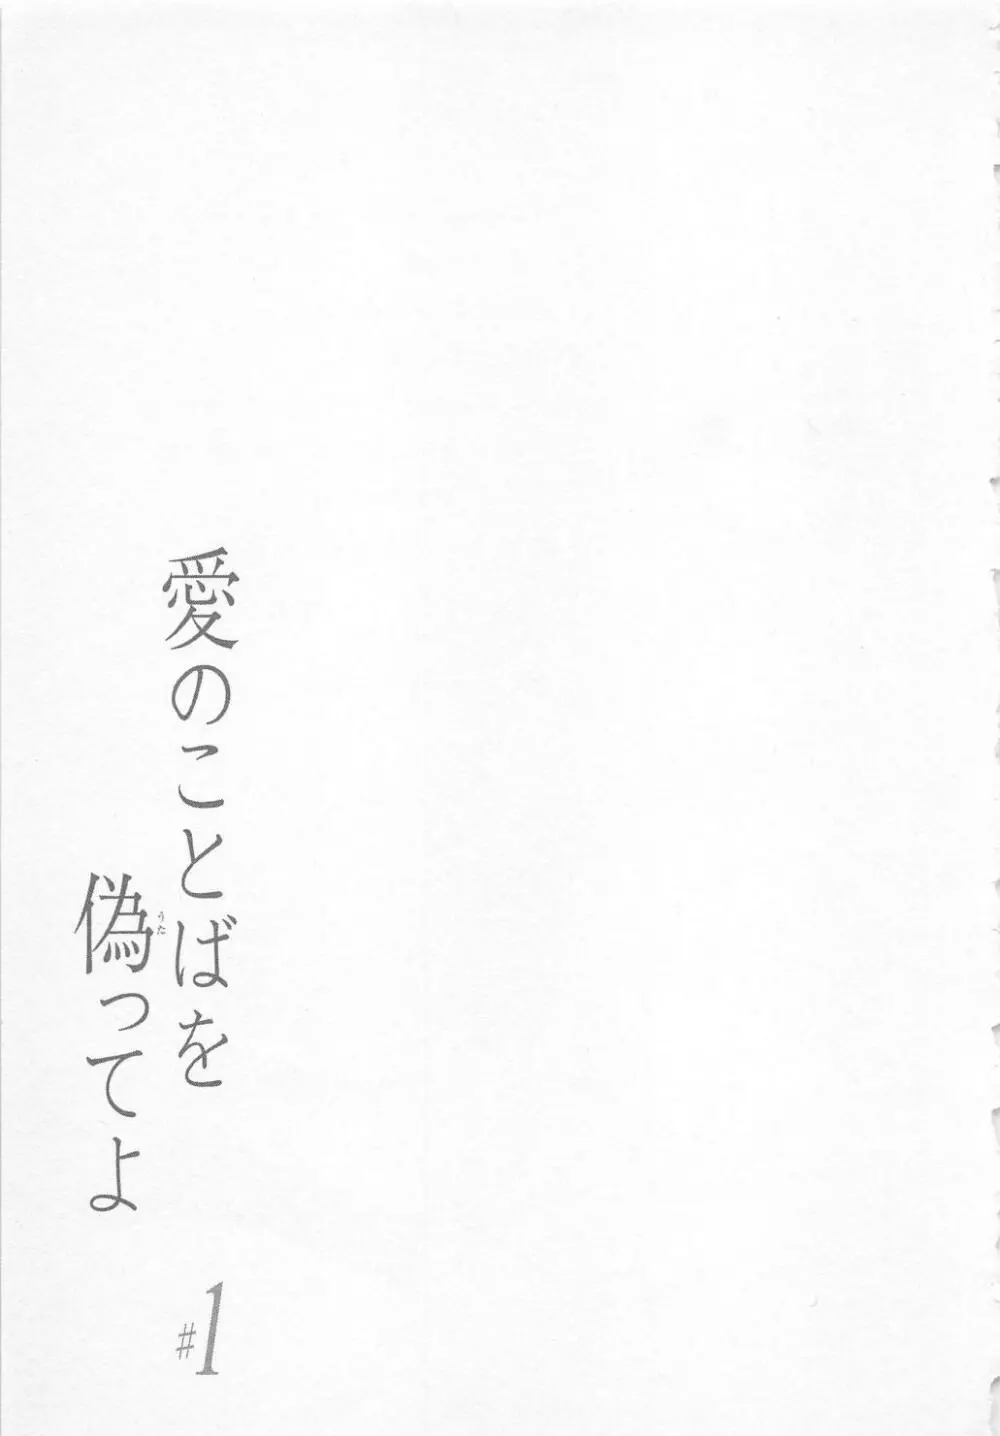 愛のことばを
偽ってよ
うた
#1